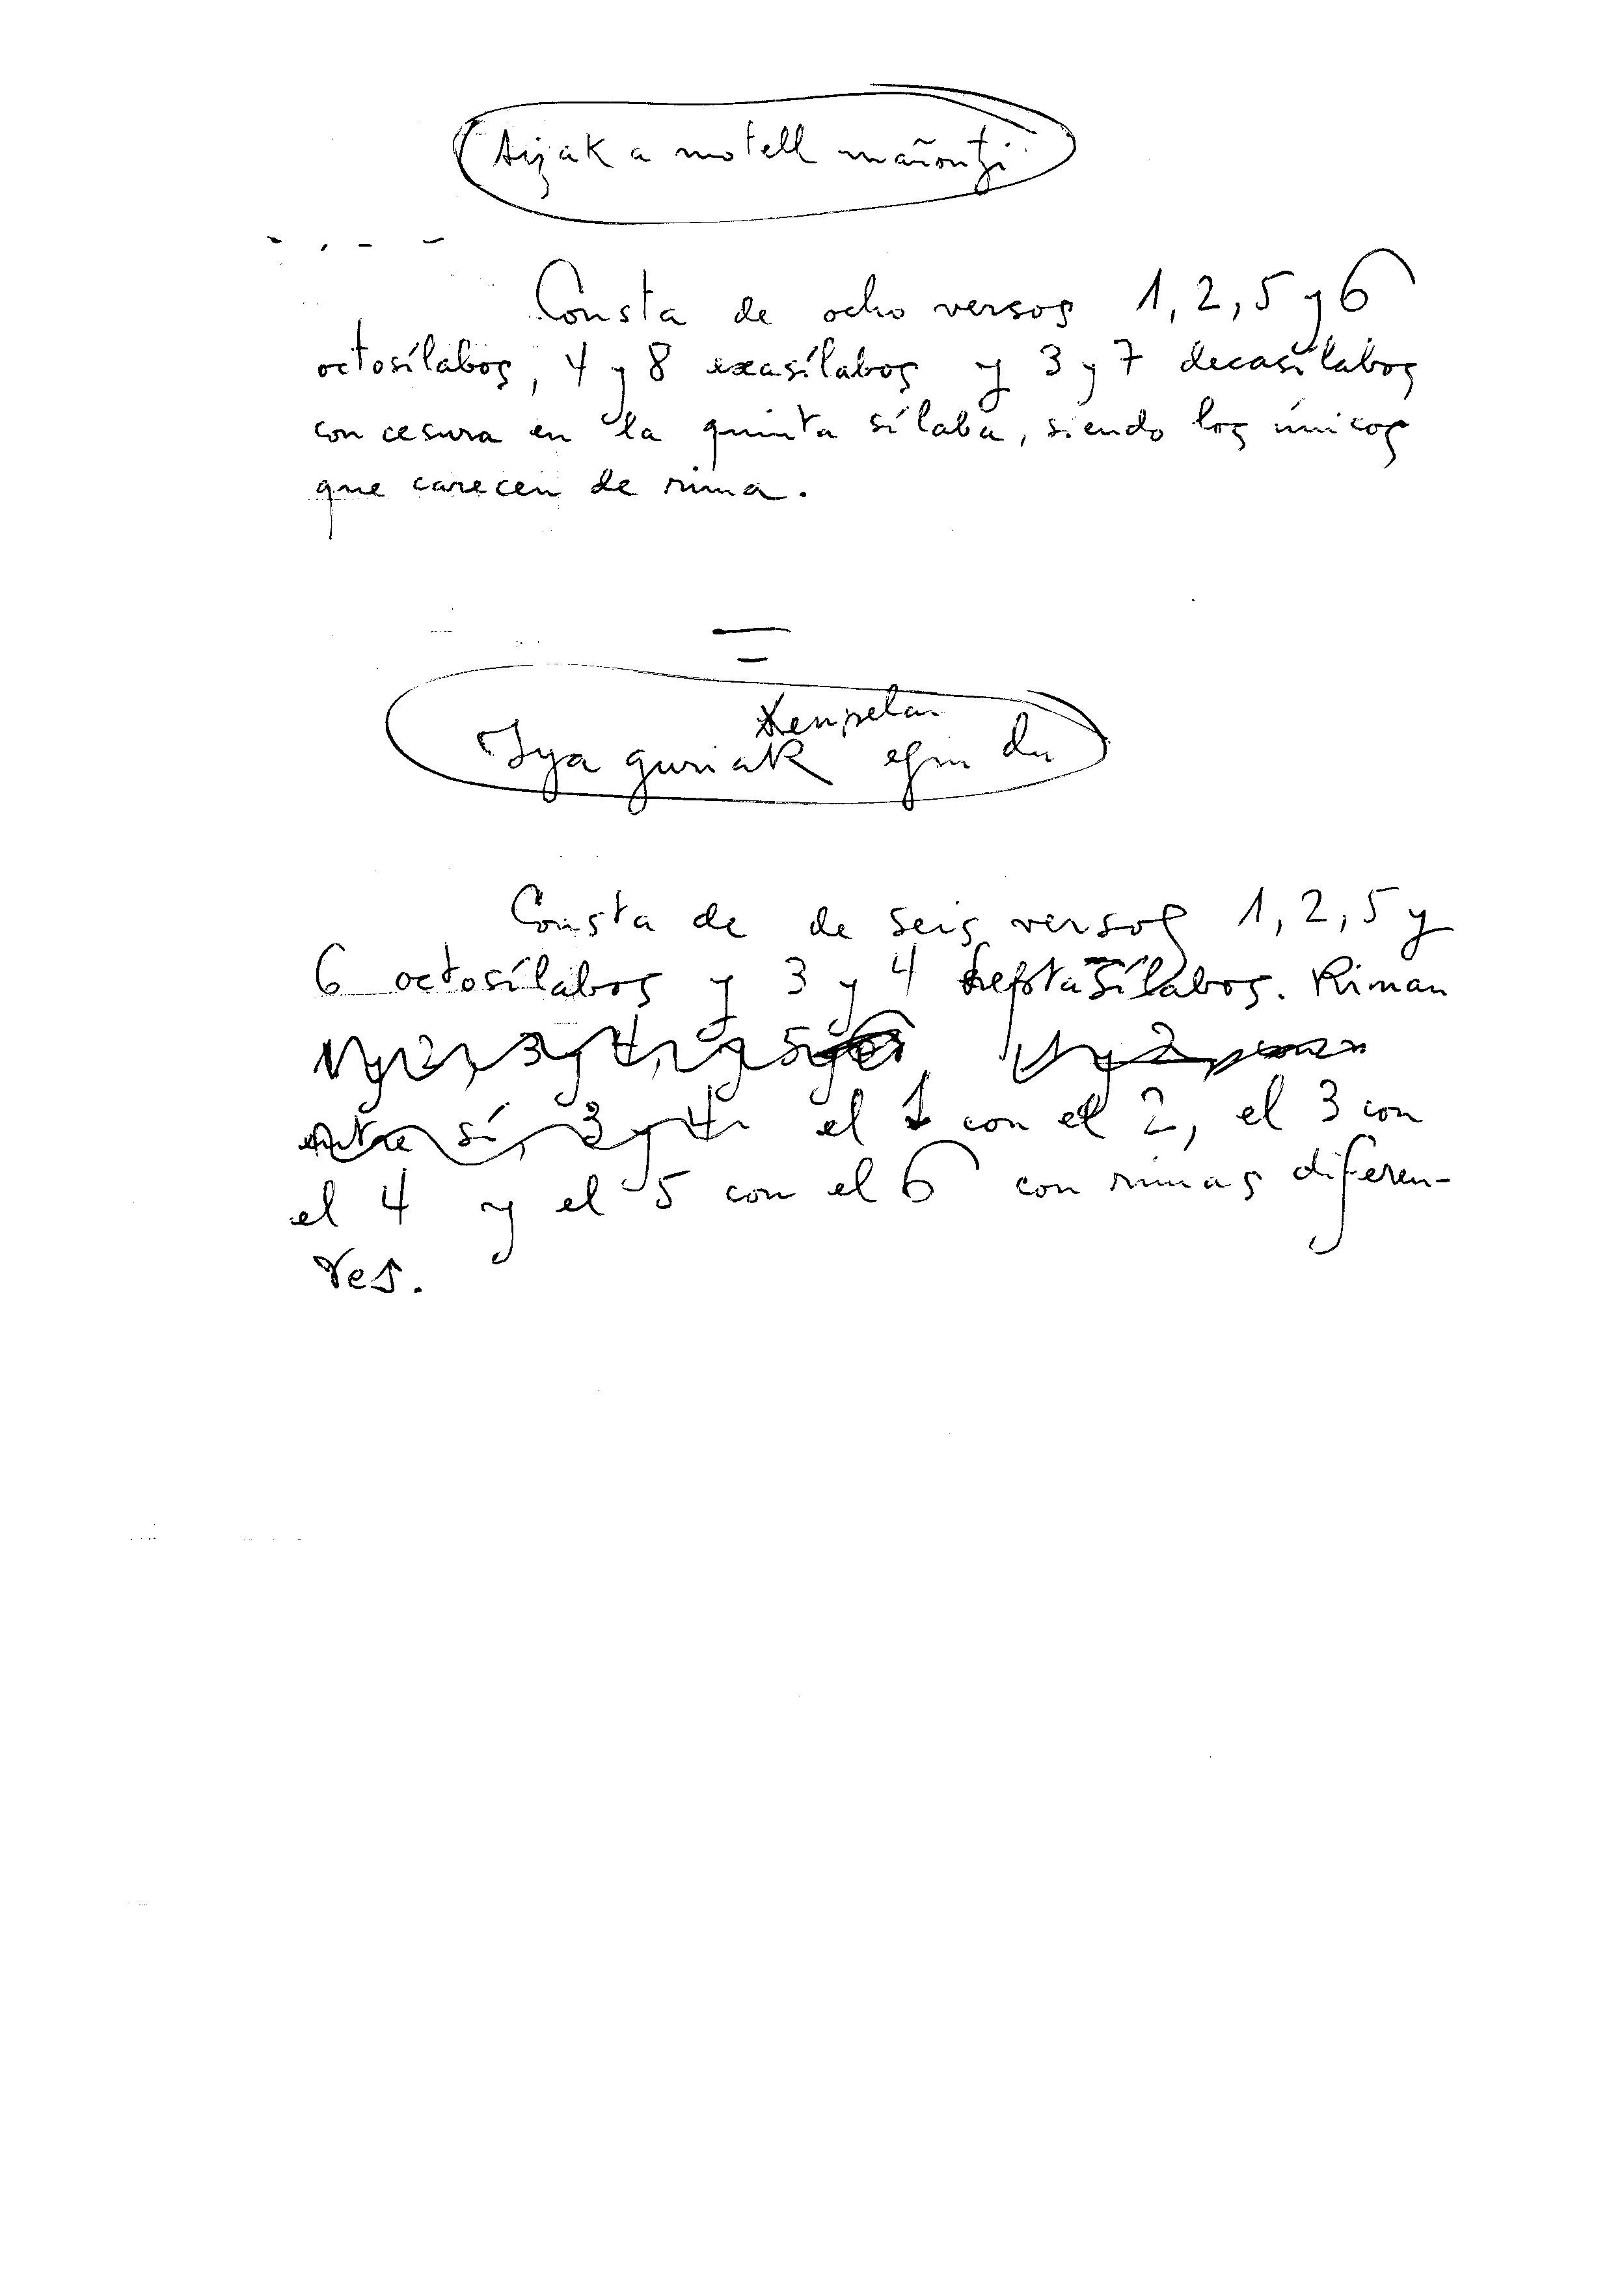 Aizak a motell mañontzi
Consta de ocho versos 1, 2, 5 y 6
octosílabos, 4 y 8 exasílabos y 3 y 7 decasílabos
con cesura en la quinta sílaba, siendo los únicos
que carecen de rima.
Xenpelar
Iya guriak egin du
Consta de de seis versos 1, 2, 5 y
6 octosílabos y 3 y 4 heptasílabos. Riman
1 y 2, 3 y 4, y 5 y 6 1 y 2
entre sí, 3 y 4 el 1 con el 2, el 3 con
el 4 y el 5 con el 6 con rimas diferen-
tes.